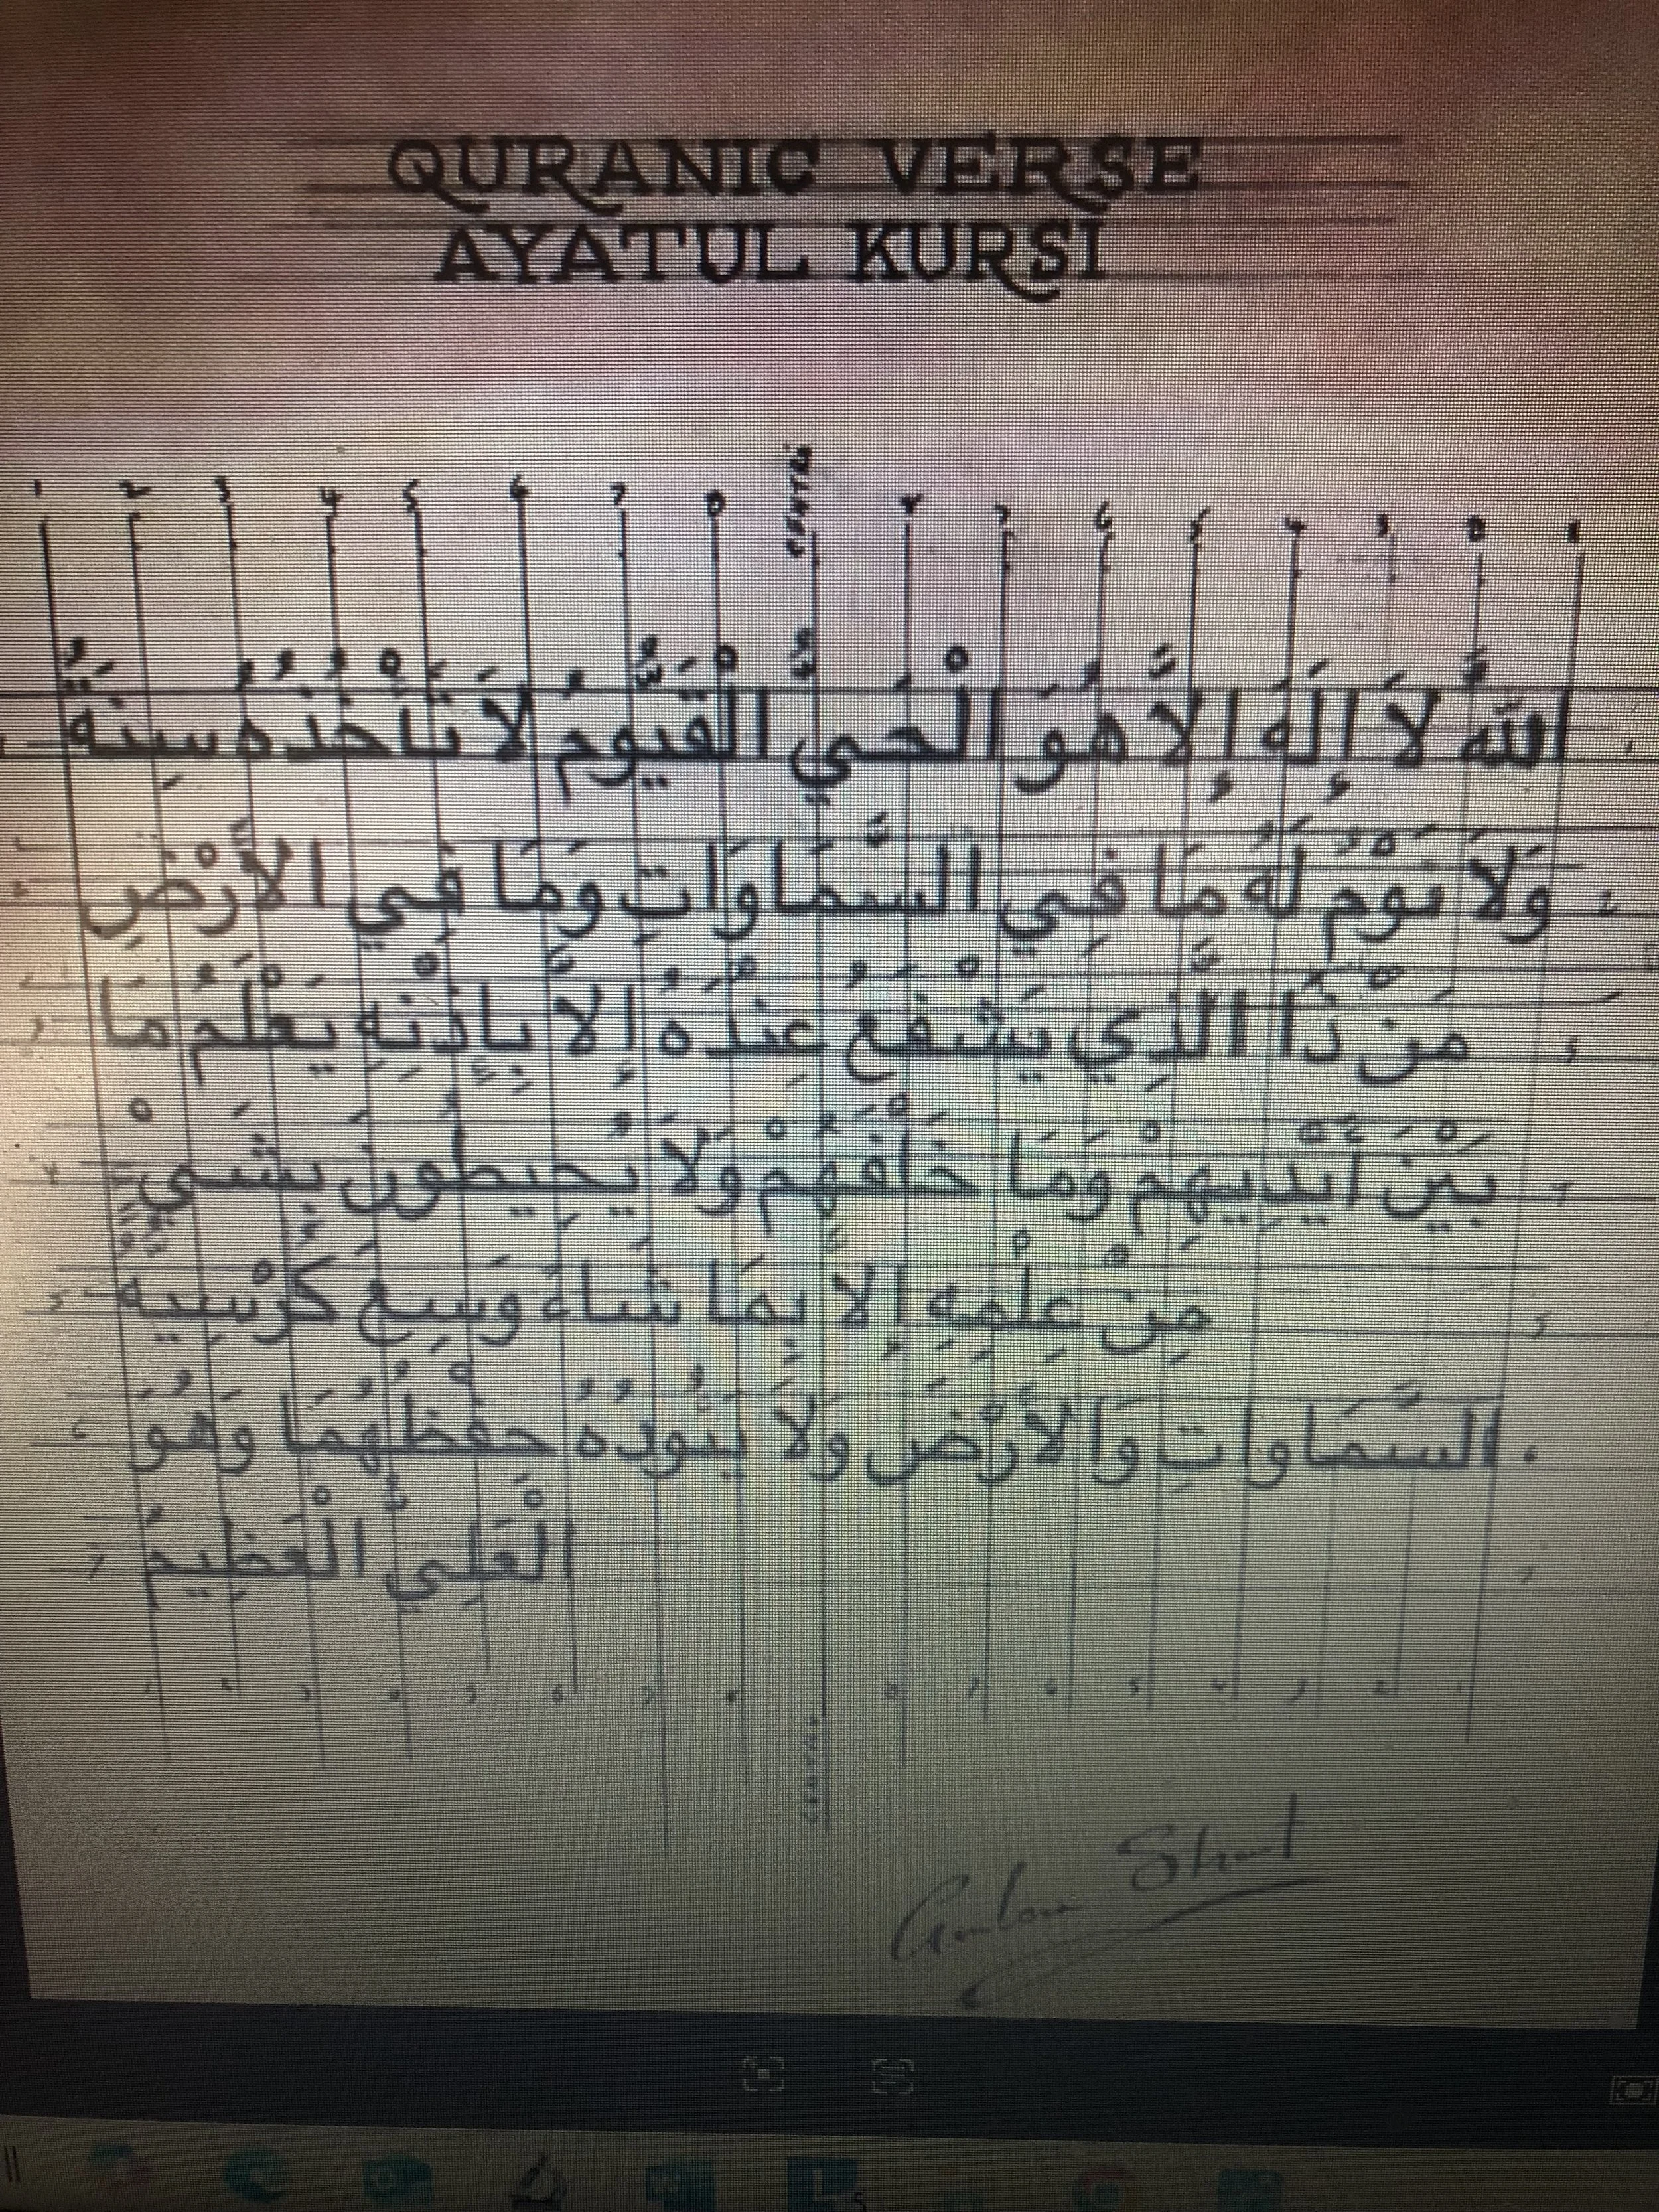 QURANIC VERSE
AYATUL KURSI
1 2 3 4 5 6 7 8 CENTRE 8 7 6 5 4 3 2 1
اللَّهُ لاَ إِلَهَ إِلاَّ هُوَ الْحَيُّ الْقَيُّومُ لاَ تَأْخُذُهُ سِنَةٌ
وَلاَ نَوْمٌ لَهُ مَا فِي السَّمَاوَاتِ وَمَا فِي الأَرْضِ
مَنْ ذَا الَّذِي يَشْفَعُ عِنْدَهُ إِلاَّ بِإِذْنِهِ يَعْلَمُ مَا
بَيْنَ أَيْدِيهِمْ وَمَا خَلْفَهُمْ وَلاَ يُحِيطُونَ بِشَيْءٍ
مِنْ عِلْمِهِ إِلاَّ بِمَا شَاءَ وَسِعَ كُرْسِيهُ
السَّمَاوَاتِ وَالأَرْضَ وَلاَ يَئُودُهُ حِفْظُهُمَا وَهُوَ
الْعَلِيُّ الْعَظِيمُ
CENTRE